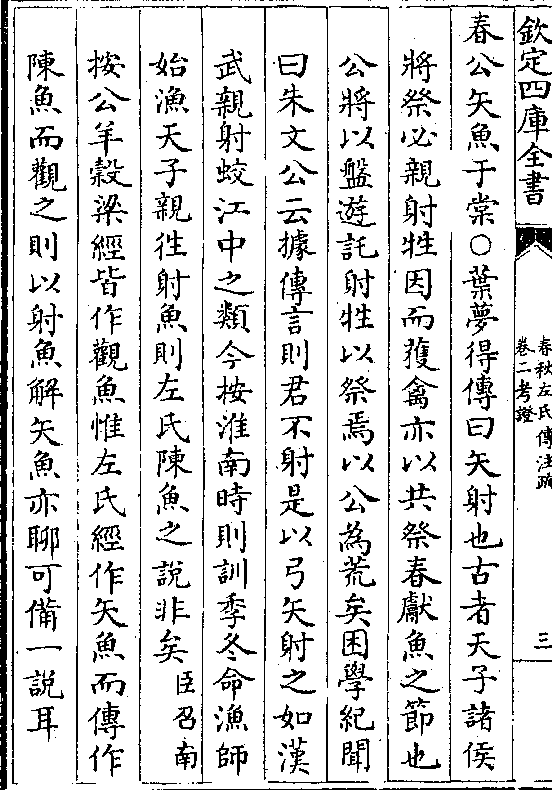 欽定四庫全書
春秋左氏傳注疏
卷二考證
三
春公矢魚于棠○葉夢得傳曰矢射也古者天子諸侯
將祭必親射牲因而獲禽亦以共祭春獻魚之節也
公將以盤遊託射牲以祭焉以公為荒矣困學紀聞
曰朱文公云據傳言則君不射是以弓矢射之如漢
武親射蛟江中之類今按淮南時則訓季冬命漁師
始漁天子親徃射魚則左氏陳魚之說非矣臣召南
按公羊穀梁經皆作觀魚惟左氏經作矢魚而傳作
陳魚而觀之則以射魚解矢魚亦聊可備一說耳